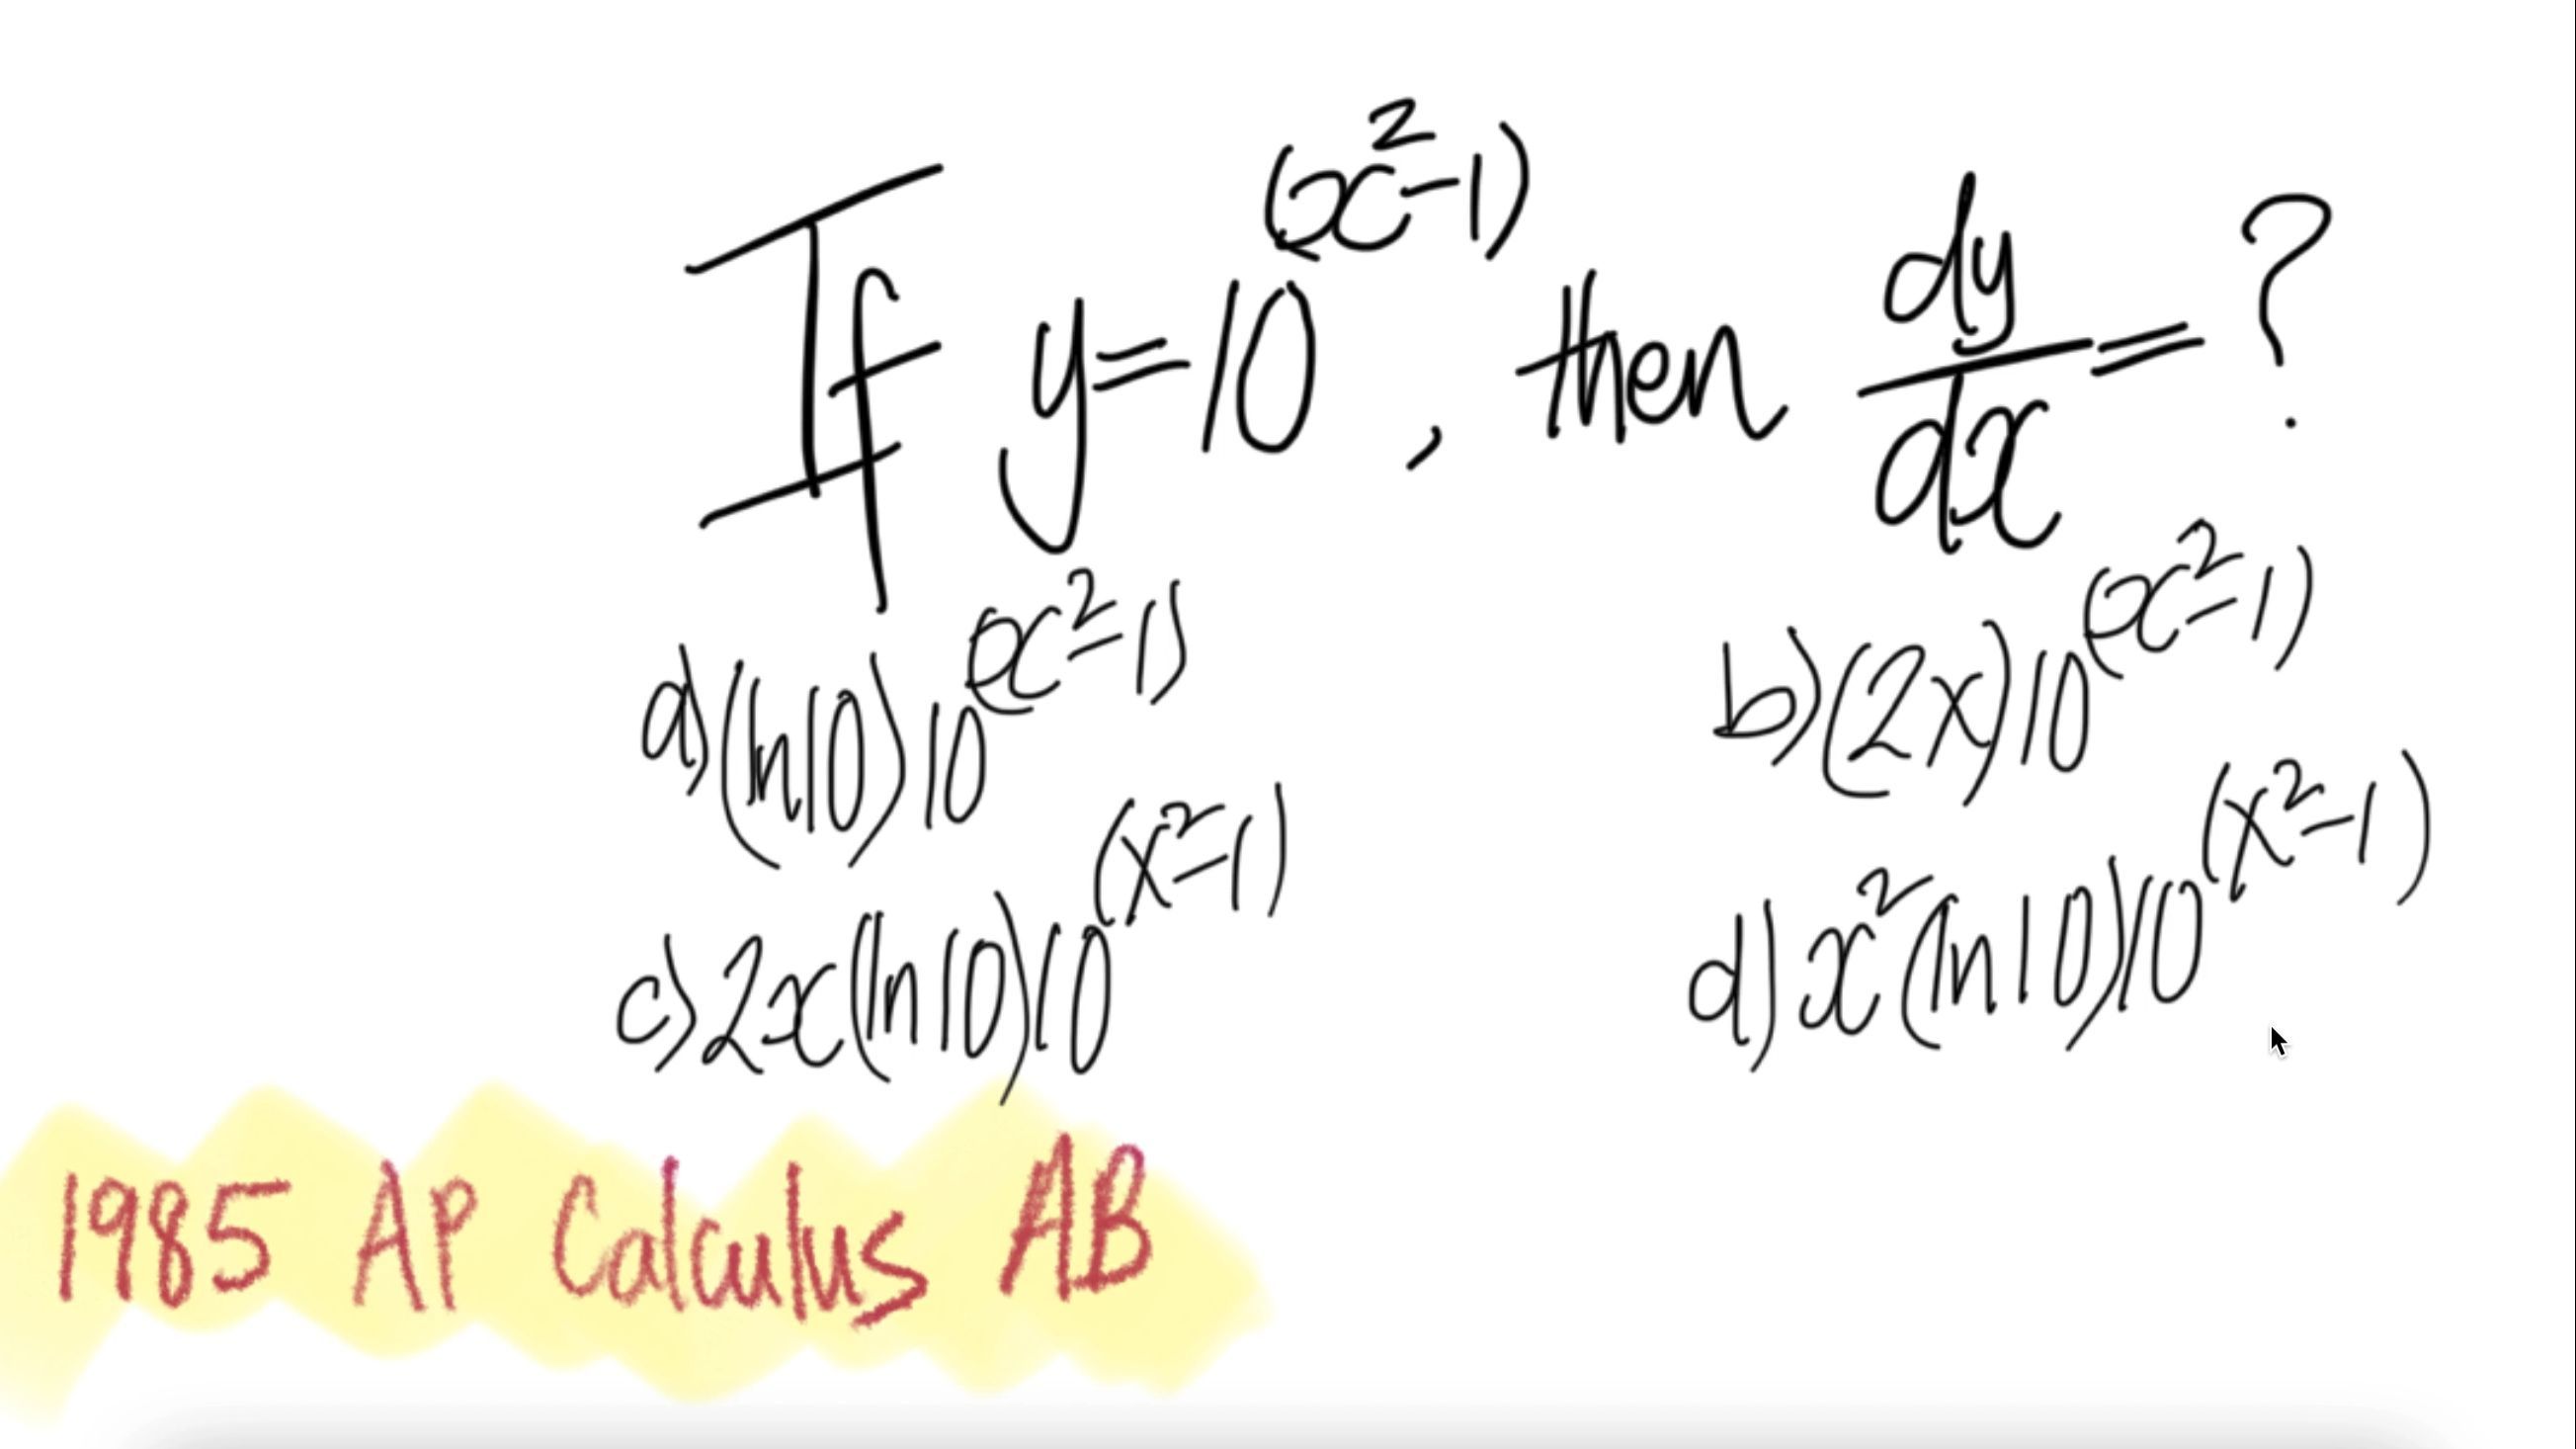 If y=10^(x²-1), then dy/dx=?
a) (ln10)10^(x²-1) b) (2x)10^(x²-1)
c) 2x(ln10)10^(x²-1) d) x²(ln10)10^(x²-1)
1985 AP Calculus AB